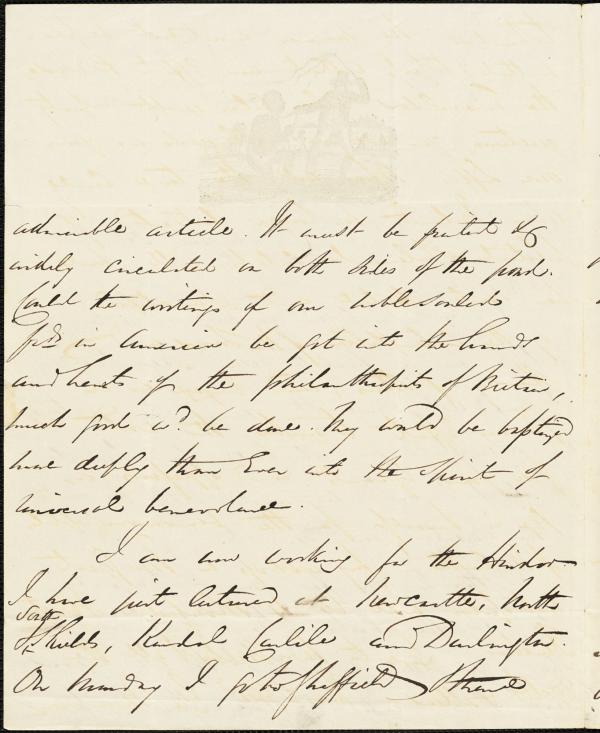 admirable article. It must be printed &
widely circulated on both sides of the pond.
Could the writings of our noble souled
frds in America be got into the hands
and hearts of the philanthropists of Britain,
much good wd. be done. They would be baptized
more deeply than Ever into the spirit of
universal benevolence.
I am now working for the Hindoo
I have just lectured at Newcastle, North
South
Shields, Kendal Carlile and Darlington.
On Monday I go to Sheffield & thence